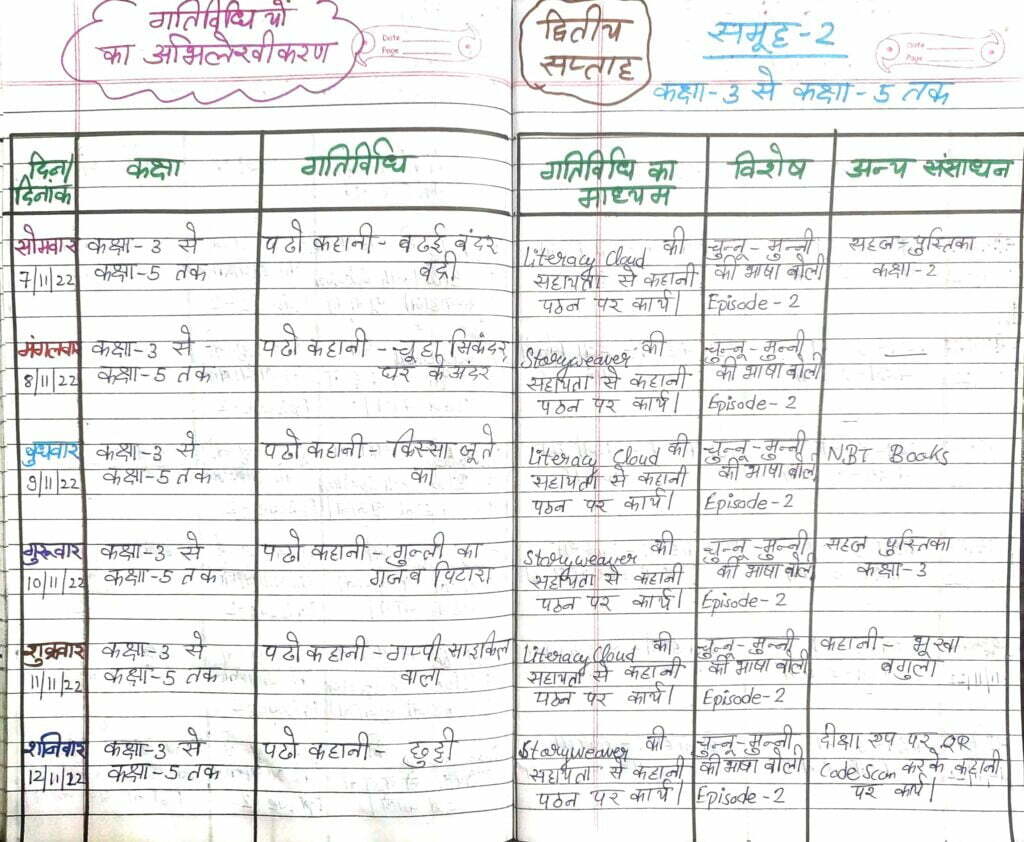 गतिविधियों
का अभिलेखीकरण
Date
Page
द्वितीय
सप्ताह
समूह-2
Date
Page
कक्षा-3 से कक्षा-5 तक
दिन/ कक्षा गतिविधि गतिविधि का विशेष अन्य संसाधन
दिनांक माध्यम
सोमवार कक्षा-3 से पढो कहानी- बढई बंदर Literacy Cloud की चुन्नू-मुन्नी सहज-पुस्तिका
7/11/22 कक्षा-5 तक बद्री सहायता से कहानी की भाषा बोली कक्षा-2
पठन पर कार्य। Episode-2
मंगलवार कक्षा-3 से पढो कहानी-चूहा सिकंदर, Storyweaver की चुन्नू-मुन्नी —
8/11/22 कक्षा-5 तक घर के अंदर सहायता से कहानी की भाषा बोली
पठन पर कार्य। Episode-2
बुधवार कक्षा-3 से पढो कहानी- किस्सा जूते Literacy Cloud की चुन्नू-मुन्नी NBT Books
9/11/22 कक्षा-5 तक का सहायता से कहानी की भाषा बोली
पठन पर कार्य। Episode-2
गुरूवार कक्षा-3 से पढो कहानी- गुन्ली का Storyweaver की चुन्नू-मुन्नी सहज पुस्तिका
10/11/22 कक्षा-5 तक गजब पिटारा सहायता से कहानी की भाषा बोली कक्षा-3
पठन पर कार्य। Episode-2
शुक्रवार कक्षा-3 से पढो कहानी-गप्पी साइकिल Literacy Cloud की चुन्नू-मुन्नी कहानी- भूखा
11/11/22 कक्षा-5 तक वाला सहायता से कहानी की भाषा बोली बगुला
पठन पर कार्य। Episode-2
शनिवार कक्षा-3 से पढो कहानी- छुट्टी Storyweaver की चुन्नू-मुन्नी दीक्षा एप पर QR
12/11/22 कक्षा-5 तक सहायता से कहानी की भाषा बोली Code Scan करके कहानी
पठन पर कार्य। Episode-2 पर कार्य।